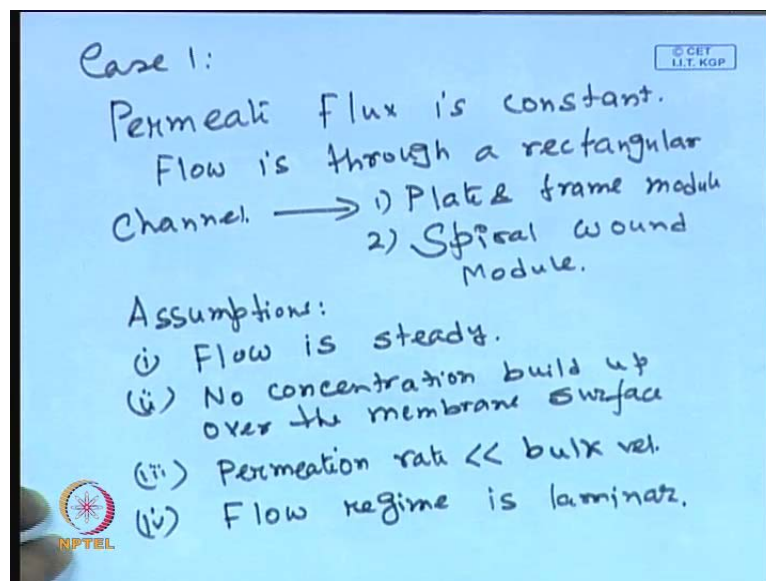 Case 1:
© CET
I.I.T. KGP
Permeate Flux is constant.
Flow is through a rectangular
Channel. → 1) Plate & frame module
2) Spiral wound
Module.
Assumptions:
(i) Flow is steady.
(ii) No concentration build up
over the membrane surface
(iii) Permeation rate << bulk vel.
(iv) Flow regime is laminar.
NPTEL